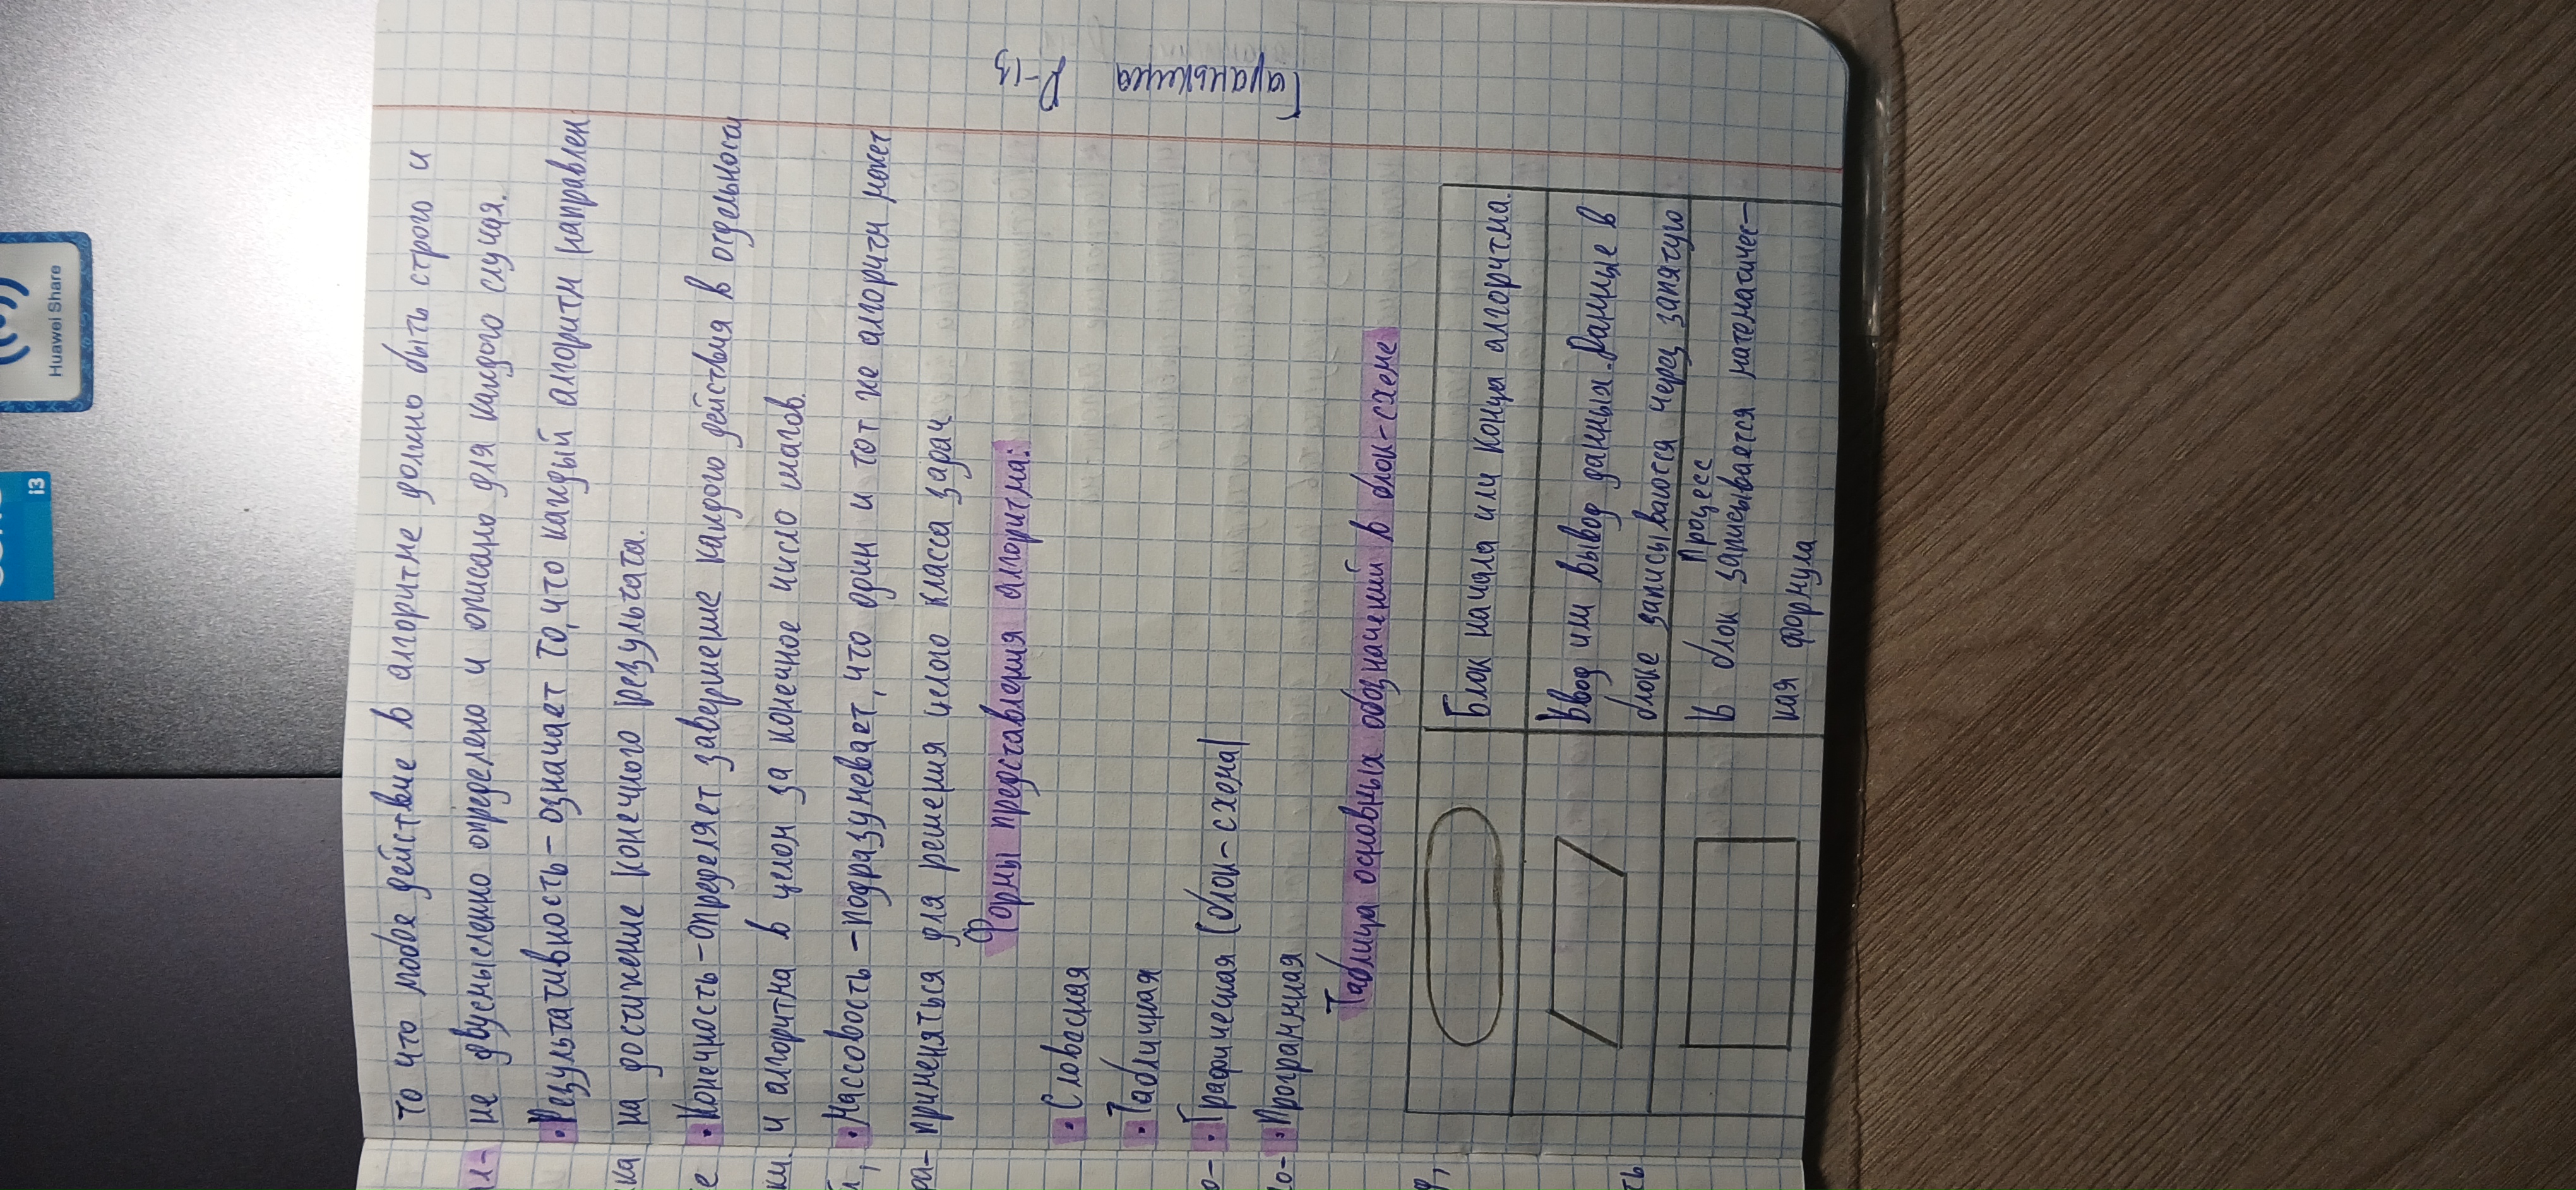 то что любое действие в алгоритме должно быть строго и
не двусмысленно определено и описано для каждого случая.
• Результативность - означает то, что каждый алгоритм направлен
на достижение конечного результата.
• Конечность - определяет завершение каждого действия в отдельности
и алгоритма в целом за конечное число шагов.
• Массовость - подразумевает, что один и тот же алгоритм может
применяться для решения целого класса задач
Формы представления алгоритма:
• Словесная
• Табличная
• Графическая (блок-схема)
• Программная
Таблица основных обозначений в блок-схеме
Блок начала или конца алгоритма.
Ввод или вывод данных. Данные в
блоке записываются через запятую
Процесс
В блок записывается математичес-
кая формула
Гаранькина Р-13
Huawei Share
i3